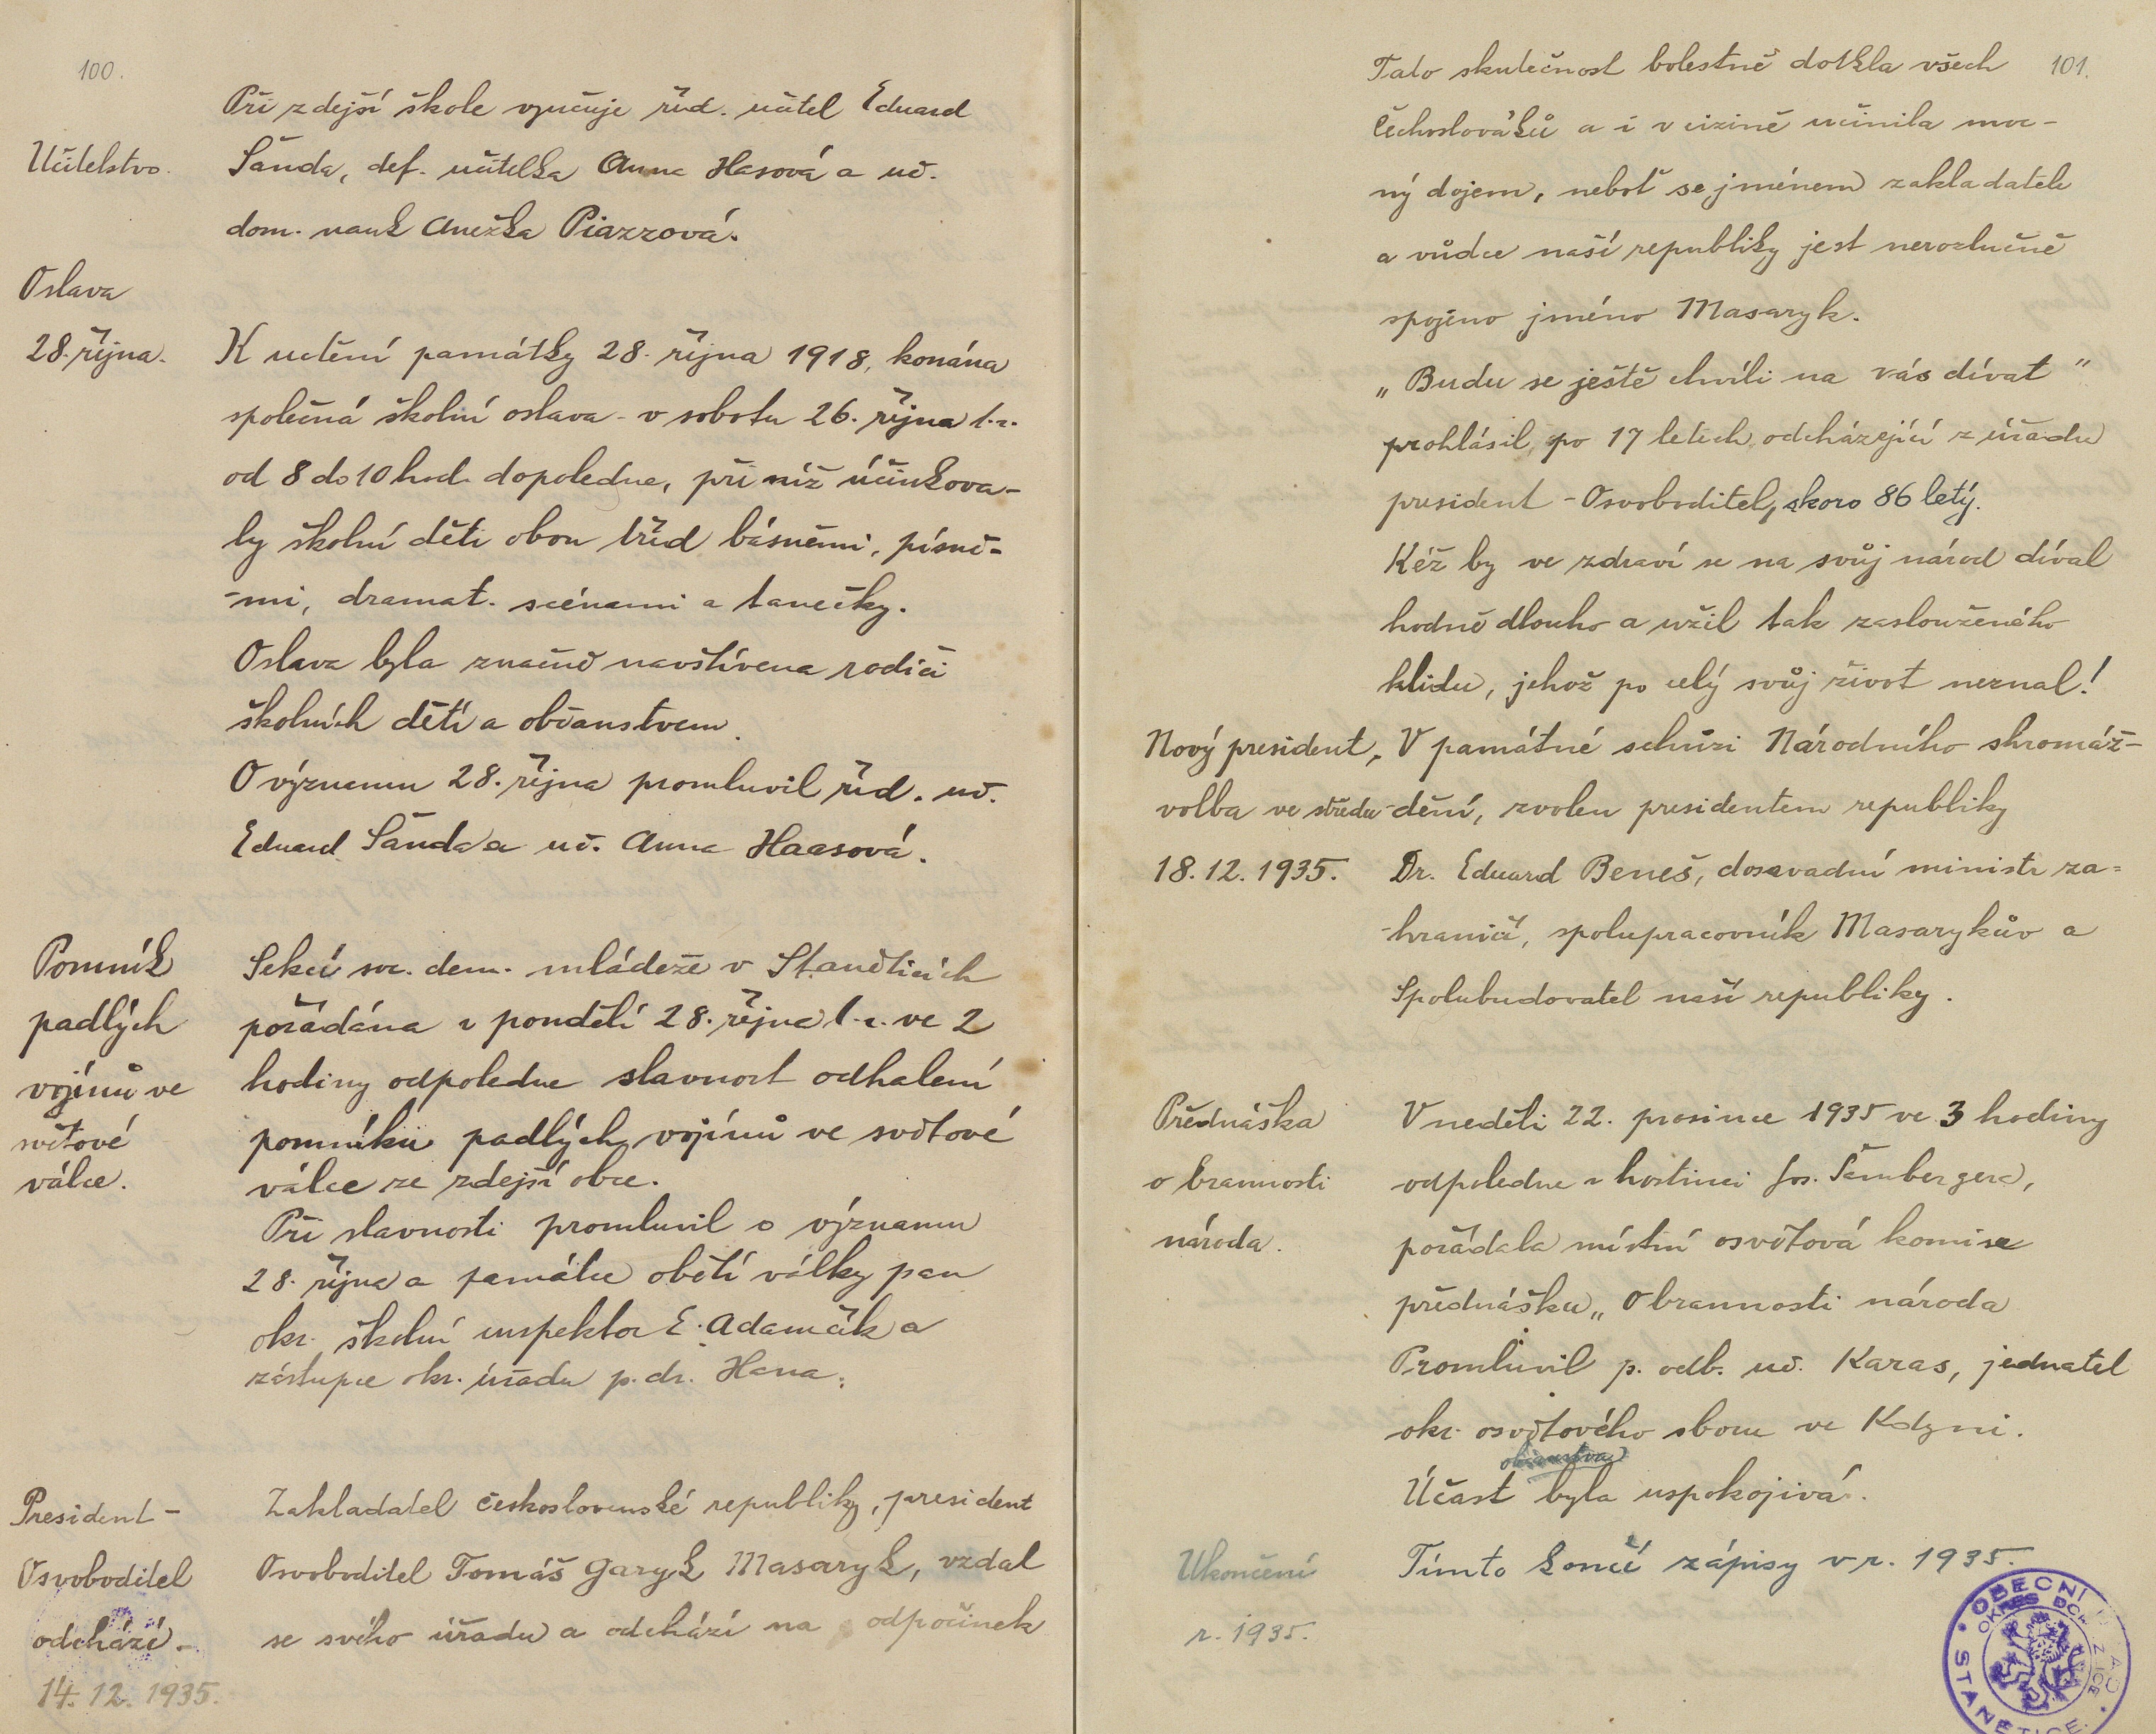 100.
Při zdejší škole vyučuje říd. učitel Eduard
Učitelstvo.
Šanda, def. učitelka Anna Hasová a uč.
dom. nauk Anežka Piazzová.
Oslava
28. října.
K uctění památky 28. října 1918, konána
společná školní oslava - v sobotu 26. října t.r.
od 8 do 10 hod. dopoledne, při níž účinkova-
ly školní děti obou tříd básněmi, písně-
-mi, dramat. scénami a tanečky.
Oslava byla značně navštívena rodiči
školních dětí a občanstvem.
O významu 28. října promluvil říd. uč.
Eduard Šanda a uč. Anna Haasová.
Pomník
padlých
vojínů ve
světové
válce.
Sekcí soc. dem. mládeže v Staněticích
pořádána v pondělí 28. října t.r. ve 2
hodiny odpoledne slavnost odhalení
pomníku padlých vojínů ve světové
válce ze zdejší obce.
Při slavnosti promluvil o významu
28. října a památce obětí války pan
okr. školní inspektor E. Adamčík a
zástupce okr. úřadu p. dr. Hana.
President-
Osvoboditel
odchází.-
14. 12. 1935.
Zakladatel československé republiky, president
Osvoboditel Tomáš Garyk Masaryk, vzdal
se svého úřadu a odchází na odpočinek
101.
Tato skutečnost bolestně dotkla všech
Čechoslováků a i v cizině učinila moc-
ný dojem, neboť se jménem zakladatele
a vůdce naší republiky jest nerozlučně
spojeno jméno Masaryk.
„Budu se ještě chvíli na vás dívat"
prohlásil, po 17 letech, odcházející z úřadu
president - Osvoboditel, skoro 86 letý.
Kéž by ve zdraví se na svůj národ díval
hodně dlouho a užil tak zaslouženého
klidu, jehož po celý svůj život neznal!
Nový president,
volba ve středu
18. 12. 1935.
V památné schůzi Národního shromáž-
-dění, zvolen presidentem republiky
Dr. Eduard Beneš, dosavadní ministr za-
-hraničí, spolupracovník Masarykův a
spolubudovatel naší republiky.
Přednáška
o brannosti
národa.
V neděli 22. prosince 1935 ve 3 hodiny
odpoledne v hostinci Jos. Šambergera,
pořádala místní osvětová komise
přednášku „O brannosti národa
Promluvil p. odb. uč. Karas, jednatel
okr. osvětového sboru ve Kdyni.
občanstva
Účast byla uspokojivá.
Ukončení
r. 1935.
Tímto končí zápisy v r. 1935.
OBECNÍ
OKRES
STANĚTICE